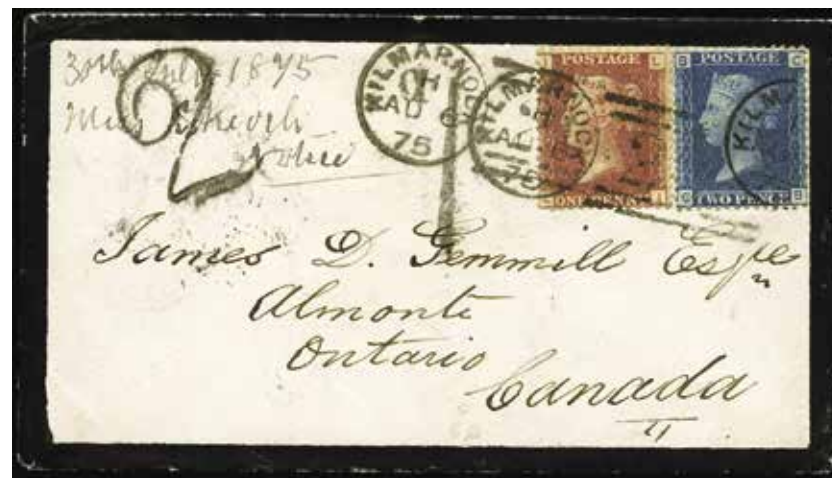 30th July 1875
Miss
2
KILMARNOCK
H
AU 6
75
KILMARNOCK
H
AU
75
POSTAGE
L
ONE PENNY
L
B POSTAGE C
C TWO PENCE B
KILM
James D. Gemmill Esqre
Almonte
Ontario
Canada